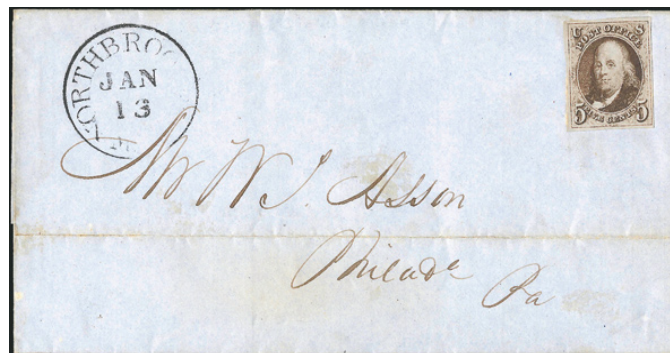 NORTHBRO
JAN
13
U S
POST OFFICE
5 FIVE CENTS 5
Mr W. J. Asson
Philada
Pa